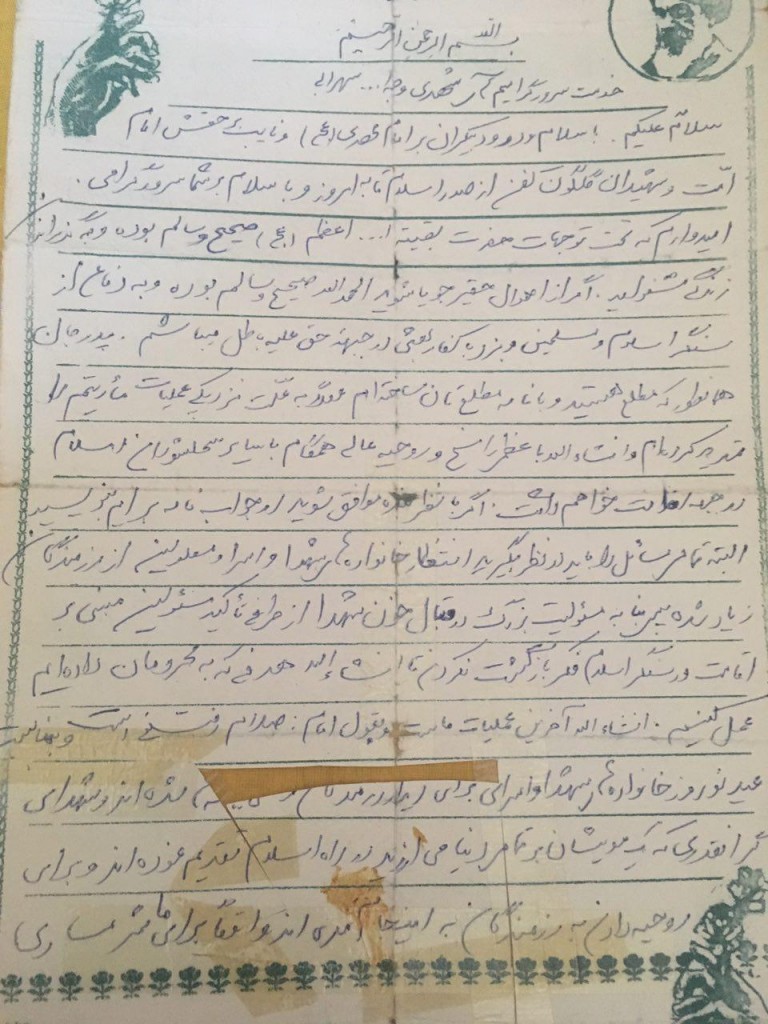 بسم الله الرحمن الرحیم
خدمت سرور گرامیم آقای محمدی وجدا... سهرابی
سلام علیکم. با سلام و درود بیکران بر امام مهدی (عج) و نایب بر حقش امام
امت و شهیدان گلگون کفن از صدر اسلام تا به امروز و با سلام بر شما سرور گرامی.
امیدوارم که تحت توجهات حضرت بقیته ا... اعظم (عج) صحیح و سالم بوده و به گذران
زندگی مشغولید. اگر از احوال حقیر جویا شوید الحمد الله صحیح و سالم بوده و به دفاع از
سنگر اسلام و مسلمین و نبرد با کفار بعثی در جبهه حق علیه باطل میباشم. پدر جان
همانطور که مطلع هستید و با نامه مطلعتان ساخته ام بعلت نزدیکی عملیات مأموریتم را
تمدید کرده ام و انشاء الله با عزم راسخ و روحیه عالی همگام با سایر سلحشوران اسلام
در جبهه اقامت خواهم داشت. اگر با نظر بنده موافق بودید در جواب نامه برایم بنویسید
البته تمامی مسائل را باید در نظر بگیرید انتظار خانواده های شهدا و اسرا و معلولین از رزمندگان
زیاد شده پس بنا به مسئولیت بزرگ در قبال خون شهدا از طرفی تأکید مسئولین مبنی بر
اقامت در سنگر اسلام فکر بازگشت نکردن تا انشاء الله هدفی که به محرومان داده ایم
عمل کنیم. انشاء الله آخرین عملیات ماست و بقول امام: صدام رفتنی است و بمناسبت
عید نوروز خانواده های شهدا و اسرا برای دیدار رزمندگان شده اند و شهدای
گرانقدری که یک مویشان بر تمام دنیا می ارزید در راه اسلام تقدیم نموده اند و برای
روحیه دادن به رزمندگان به اینجا آمدی اند و واقعاً برای ما شرمساری